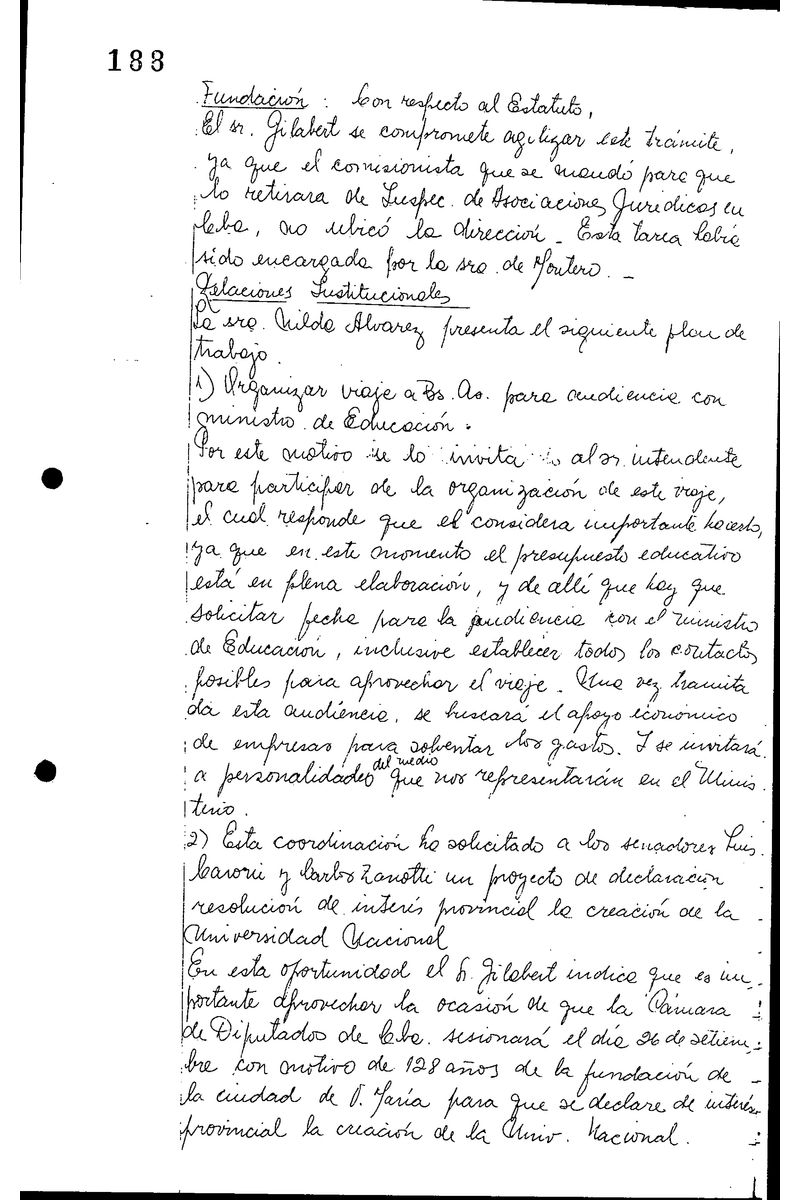 188
Fundación: Con respecto al Estatuto,
El sr. Gilabert se compromete agilizar este trámite,
ya que el comisionista que se mandó para que
lo retirara de Inspec. de Asociaciones Jurídicas en
Cba, no ubicó la dirección - Esta tarea había
sido encargada por la sra de Montero. -
Relaciones Institucionales
La sra. Nilda Alvarez presenta el siguiente plan de
trabajo.
1) Organizar viaje a Bs. As. para audiencia con
ministro de Educación.
Por este motivo se lo invita al sr intendente
para participar de la organización de este viaje,
el cual responde que el considera importante hacerlo,
ya que en este momento el presupuesto educativo
está en plena elaboración, y de allí que hay que
solicitar fecha para la audiencia con el ministro
de Educación, inclusive establecer todos los contactos
posibles para aprovechar el viaje. Una vez tramita
da esta audiencia, se buscará el apoyo económico
de empresas para solventar los gastos. Y se invitará
a personalidades del medio que nos representarán en el Minis
terio.
2) Esta coordinación ha solicitado a los senadores Luis
Caronni y Carlos Zanotti un proyecto de declaración
resolución de interés provincial la creación de la
Universidad Nacional
En esta oportunidad el Sr. Gilabert indica que es im
portante aprovechar la ocasión de que la Cámara
de Diputados de Cba. sesionará el día 26 de setiem
bre con motivo de 128 años de la fundación de
la ciudad de V. María para que se declare de interés
provincial la creación de la Univ. Nacional.